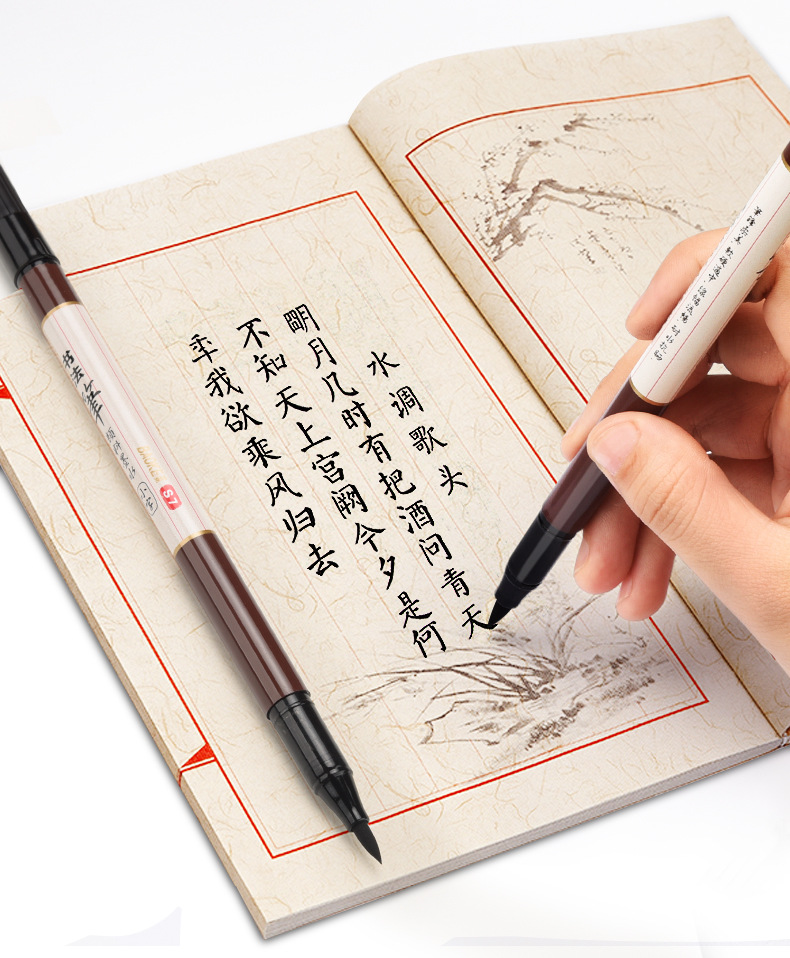 水调歌头
朙月几时有把酒问青天
不知天上宫阙今夕是何
年我欲乘风归去
书法软笔
S7